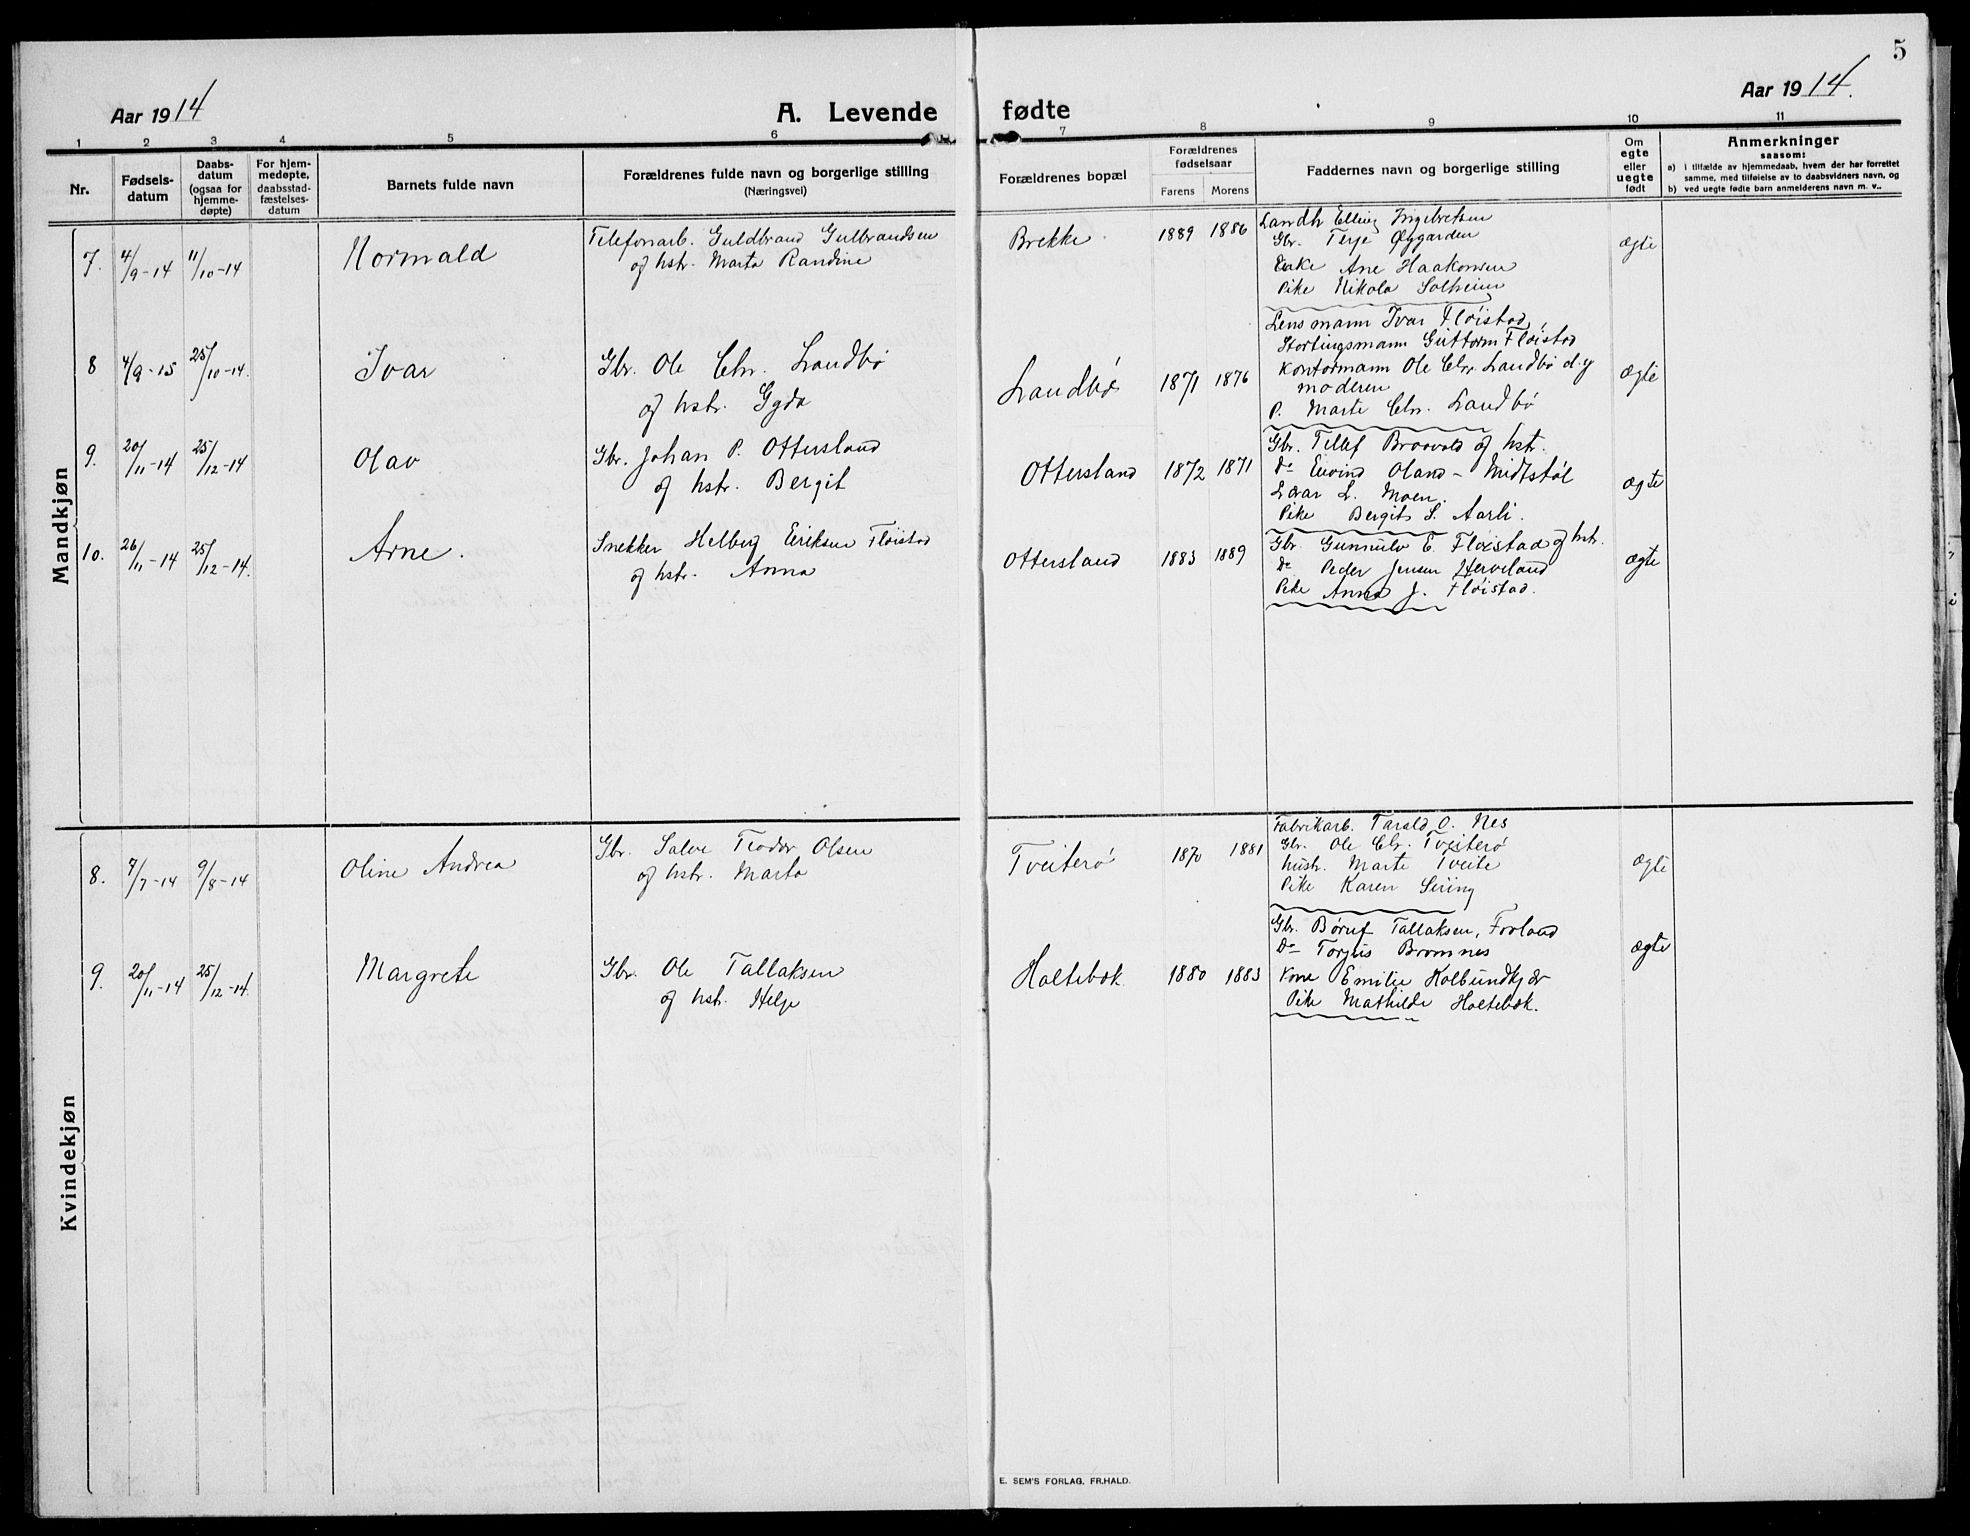 5
Aar 1914
A. Levende fødte
Aar 1914.
1 2 3 4 5 6 7 8 9 10 11
Nr.
Fødsels-
datum
Daabs-
datum
(ogsaa for
hjemme-
døpte)
For hjem-
medøpte,
daabsstad-
fæstelses-
datum
Barnets fulde navn
Forældrenes fulde navn og borgerlige stilling
(Næringsvei)
Forældrenes bopæl
Forældrenes
fødselsaar
Farens Morens
Faddernes navn og borgerlige stilling
Om
egte
eller
uegte
født
Anmerkninger
saasom:
a) i tilfælde av hjemmedaab, hvem der har forrettet
samme, med tilføielse av to daabsvidners navn, og
b) ved uegte fødte barn anmelderens navn m. v..
Mandkjøn
7. 4/9-14 11/10-14 Normald
Telefonarb. Guldbrand Gulbrandsen
og hstr. Marta Randine
Brekke 1889 1886
Landh Elling Ingebretsen
Gbr. Terje Øygarden
Enke Ane Haakonsen
Pike Nikola Solheim
ægte
8 4/9-15 25/10-14. Ivar
Gbr. Ole Chr. Landbø
og hstr. Gyda
Landbø 1871 1876
Lensmann Ivar Fløistad
Stortingsmann Guttorm Fløistad
Kontormann Ole Chr. Landbø d.y
moderen
P. Marte Chr. Landbø
ægte
9. 20/11-14 25/12-14 Olav
Gbr. Johan P. Ottersland
og hstr. Bergit
Ottersland 1872 1871
Gbr. Tellef Braavold og hstr.
Do Eivind Oland - Midtstøl
Lærar L. Moen.
Pike Bergit S. Aarli.
ægte
10. 26/11-14 25/12-14. Arne.
Snekker Helberg Eriksen Fløistad
og hstr. Anna
Ottersland 1883 1889
Gbr. Gunnulv E. Fløistad og hstr.
Do Peder Jensen Herveland
Pike Anna J. Fløistad.
ægte
Kvindekjøn
8. 7/7-14 9/8-14 Oline Andrea
Gbr. Salve Teodor Olsen
og hstr. Marta
Tveiterø 1870 1881
Fabrikarb. Tarald O. Nes
Gbr. Ole Chr. Tveiterø
hustr. Marte Tveite
Pike Karen Sering
ægte
9. 20/11-14 25/12-14. Margrete
Gbr. Ole Tallaksen
og hstr. Helje
Holtebek 1880 1883
Gbr. Børuf Tallaksen, Froland
Do Torjus Bromnes
Kone Emilie Kolbundkjær
Pike Mathilde Holtebek.
ægte
E. SEM'S FORLAG, FR.HALD.